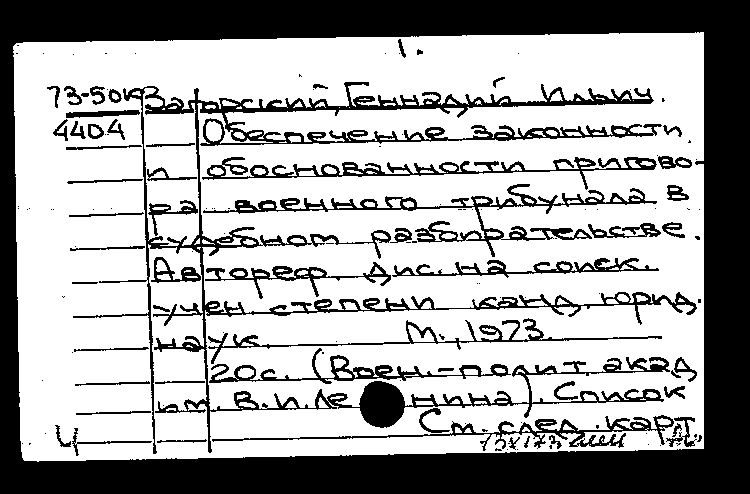 1.
73-50к3 Загорский, Геннадий Ильич.
4404 Обеспечение законности
и обоснованности пригово-
ра военного трибунала в
судебном разбирательстве.
Автореф. дис. на соиск.
учен. степени канд. юрид.
наук. М., 1973.
20с. (Воен.-полит. акад
им. В.И.Ленина). Список
См. след. карт
Ч